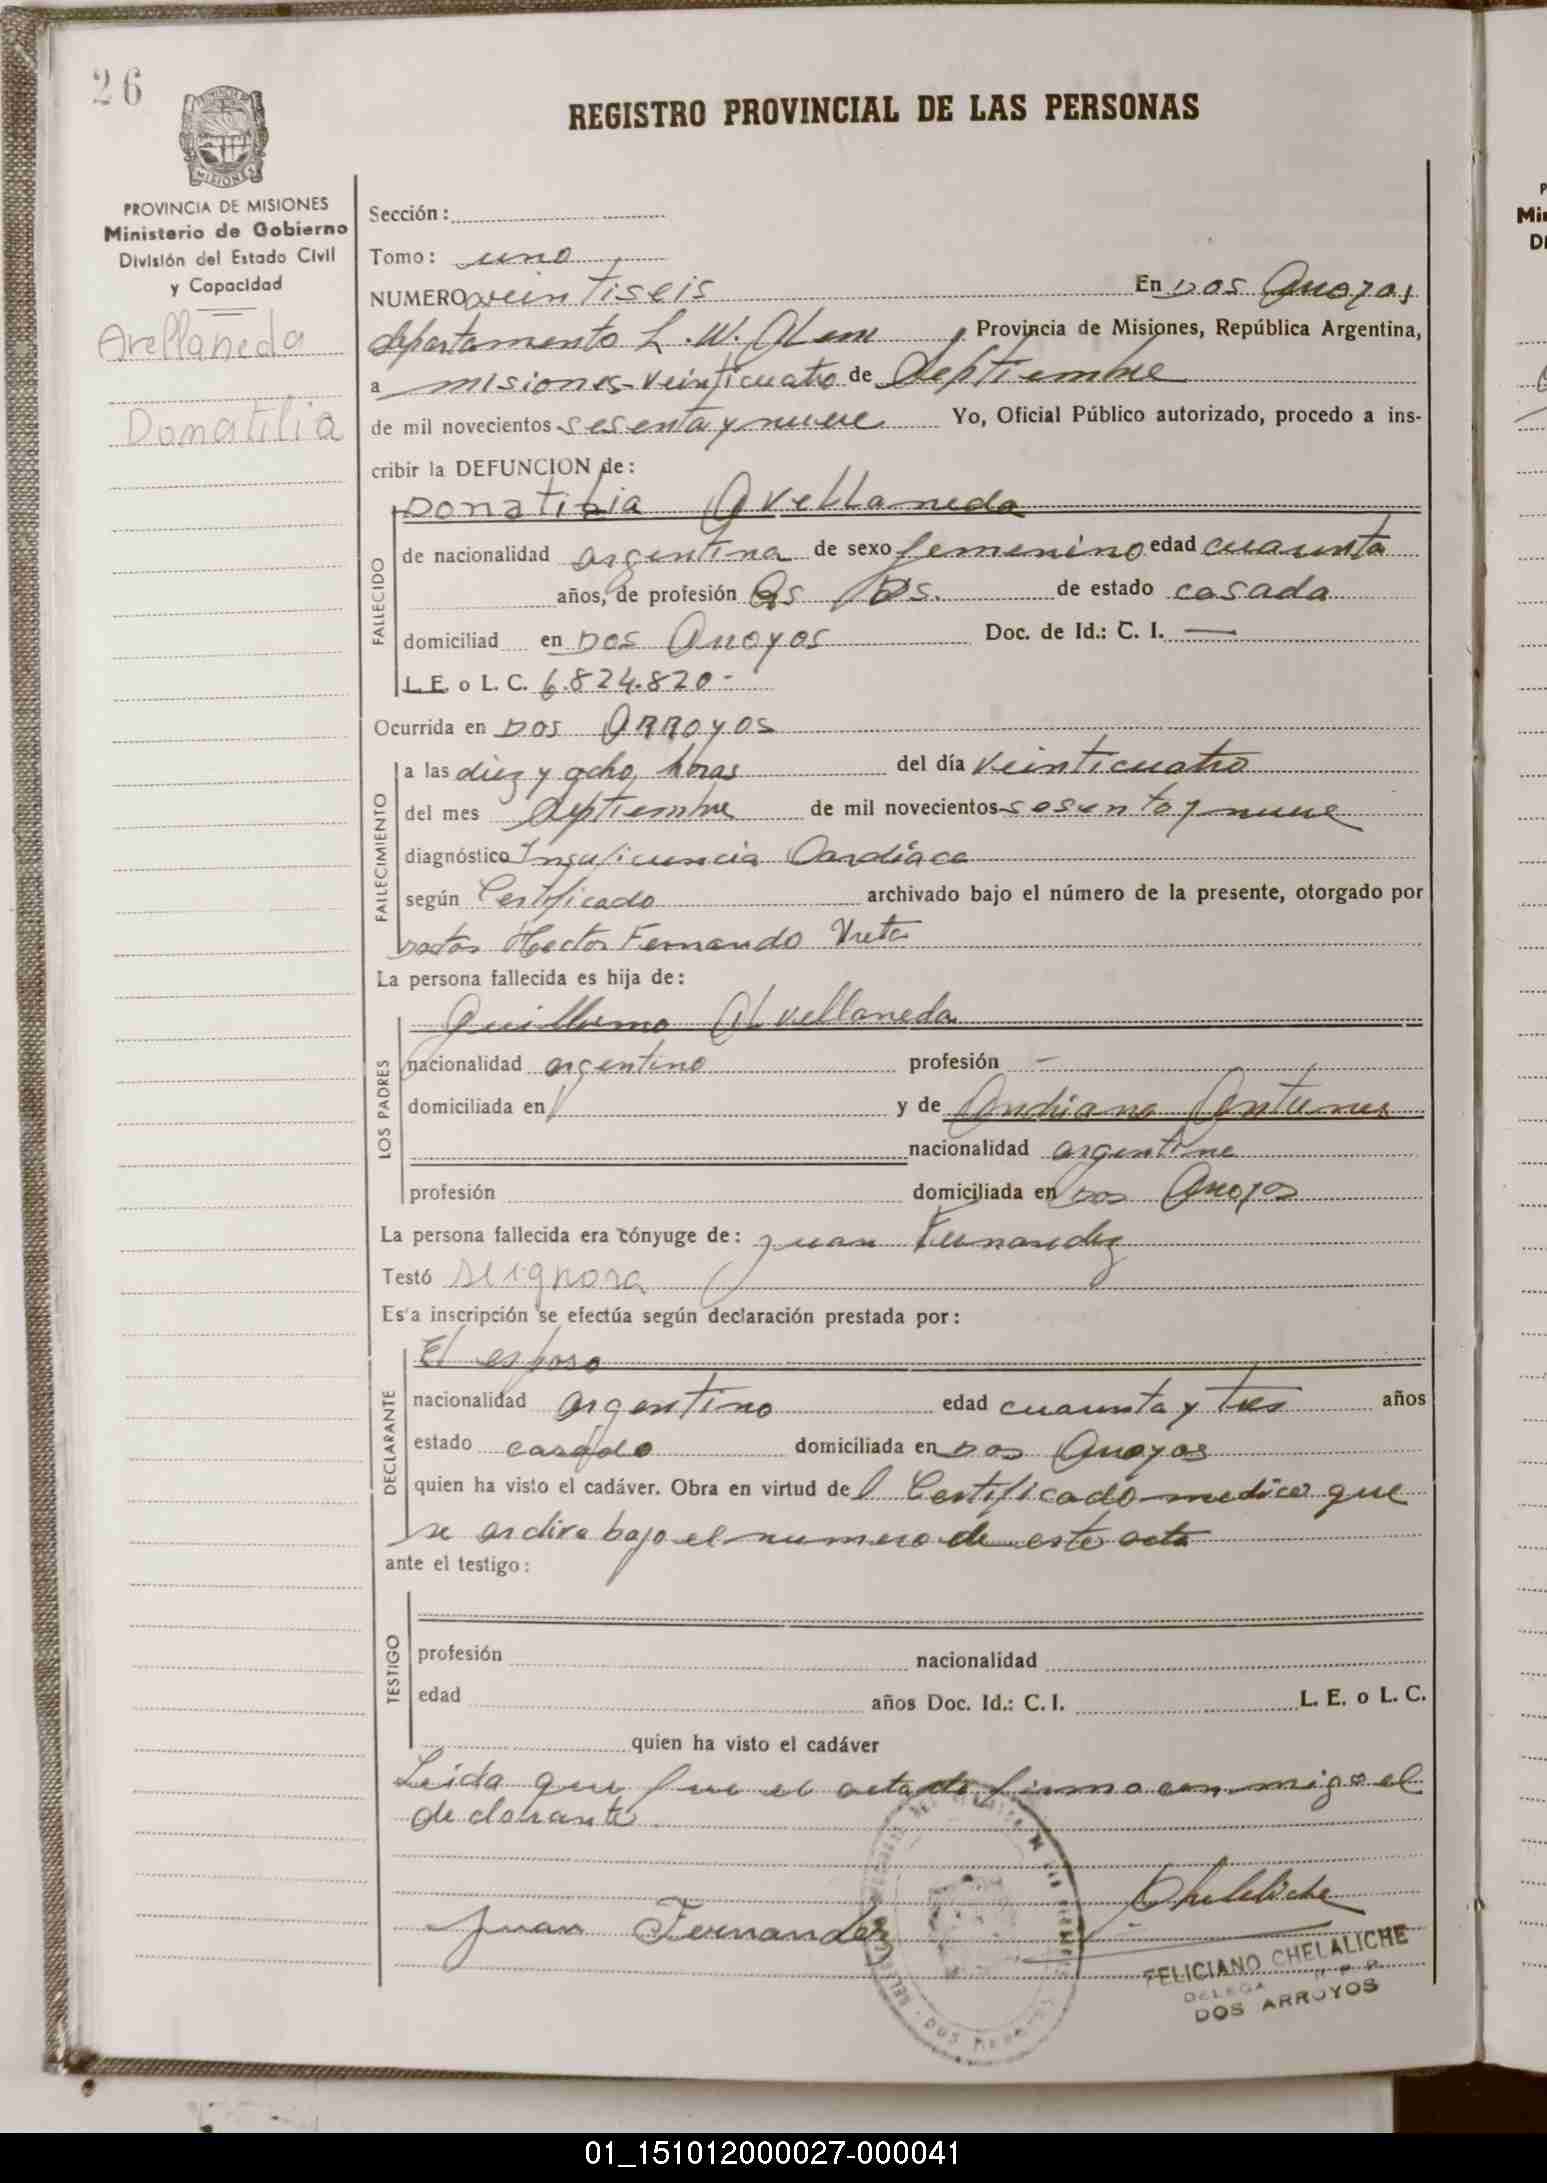 26
REGISTRO PROVINCIAL DE LAS PERSONAS
MISIONES
PROVINCIA DE MISIONES
Ministerio de Gobierno
División del Estado Civil
y Capacidad
Avellaneda
Donatilia
Sección:
Tomo: uno
NUMERO veintiseis En Dos Arroyos
departamento L. W. Alem Provincia de Misiones, República Argentina,
a misiones veinticuatro de Septiembre
de mil novecientos sesenta y nueve Yo, Oficial Público autorizado, procedo a ins-
cribir la DEFUNCION de:
Donatilia Avellaneda
FALLECIDO
de nacionalidad argentina de sexo femenino edad cuarenta
años, de profesión de estado casada
domiciliad en Dos Arroyos Doc. de Id.: C. I. —
L. E. o L. C. 6.824.820-
Ocurrida en Dos Arroyos
FALLECIMIENTO
a las diez y ocho horas del día veinticuatro
del mes Septiembre de mil novecientos sesenta y nueve
diagnóstico Insuficiencia Cardíaca
según Certificado archivado bajo el número de la presente, otorgado por
Hector Fernando
La persona fallecida es hija de:
LOS PADRES
Guillermo Avellaneda
nacionalidad argentino profesión -
domiciliada en y de Andriana Antunes
nacionalidad argentina
profesión domiciliada en Dos Arroyos
La persona fallecida era cónyuge de: Juan Fernandez
Testó se ignora
Es'a inscripción se efectúa según declaración prestada por:
DECLARANTE
El esposo
nacionalidad argentino edad cuarenta y tres años
estado casado domiciliada en Dos Arroyos
quien ha visto el cadáver. Obra en virtud del Certificado medico que
se ardiva bajo el numero de este acta
ante el testigo:
TESTIGO
profesión nacionalidad
edad años Doc. Id.: C. I. L. E. o L. C.
quien ha visto el cadáver
Leida que fue el acta firmo con migo el
declarante
Juan Fernandez
Chelaliche
FELICIANO CHELALICHE
DELEGA R P P
DOS ARROYOS
DOS ARROYOS
01_151012000027-000041